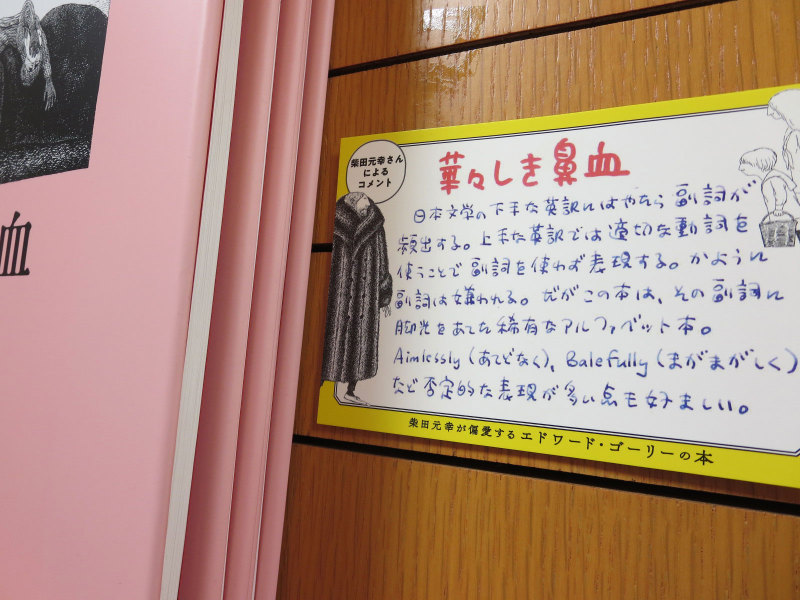 血
柴田元幸さん
による
コメント
華々しき鼻血
日本文学の下手な英訳にはやたら副詞が
頻出する。上手な英訳では適切な動詞を
使うことで副詞を使わず表現する。かように
副詞は嫌われる。だがこの本は、その副詞に
脚光をあてた稀有なアルファベット本。
Aimlessly(あてどなく)、Balefully(まがまがしく)
など否定的な表現が多い点も好ましい。
柴田元幸が偏愛するエドワード・ゴーリーの本